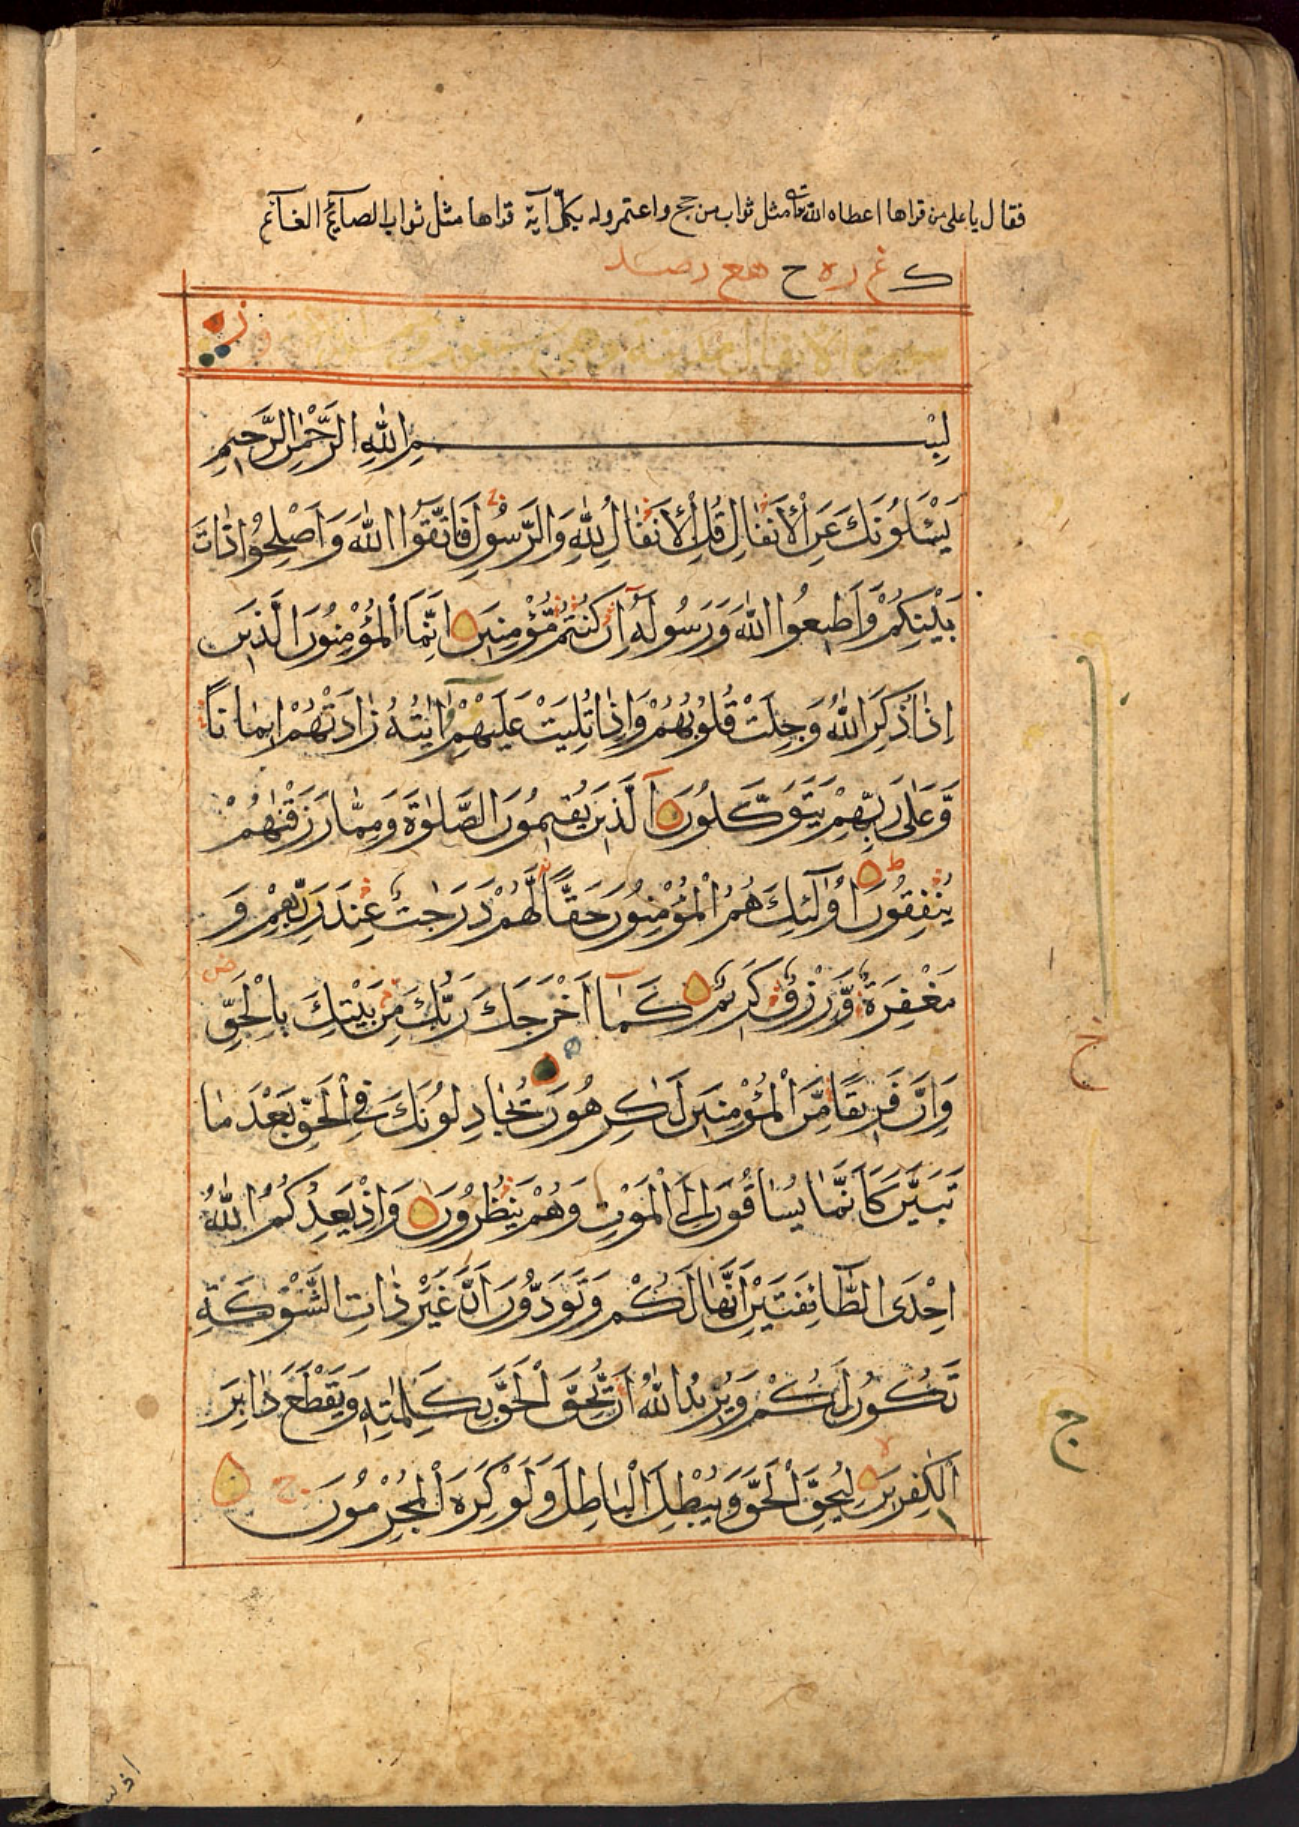 فقال يا على من قراها اعطاه الله تعالى مثل ثواب من حج واعتمر وله بكل آية قراها مثل ثواب الصائم الغانم
سورة الانفال مدنية وهى سبعون
بِسْمِ اللّٰهِ الرَّحْمٰنِ الرَّحِيمِ
يَسْئَلُونَكَ عَنِ الْأَنْفَالِ قُلِ الْأَنْفَالُ لِلّٰهِ وَالرَّسُولِ فَاتَّقُوا اللّٰهَ وَاَصْلِحُوا ذَاتَ
بَيْنِكُمْ وَاَطِيعُوا اللّٰهَ وَرَسُولَهُ اِنْ كُنْتُمْ مُؤْمِنِينَ اِنَّمَا الْمُؤْمِنُونَ الَّذِينَ
اِذَا ذُكِرَ اللّٰهُ وَجِلَتْ قُلُوبُهُمْ وَاِذَا تُلِيَتْ عَلَيْهِمْ اٰيٰتُهُ زَادَتْهُمْ اِيمَانًا
وَعَلٰى رَبِّهِمْ يَتَوَكَّلُونَ اَلَّذِينَ يُقِيمُونَ الصَّلٰوةَ وَمِمَّا رَزَقْنٰهُمْ
يُنْفِقُونَ اُولٰئِكَ هُمُ الْمُؤْمِنُونَ حَقًّا لَهُمْ دَرَجٰتٌ عِنْدَ رَبِّهِمْ وَ
مَغْفِرَةٌ وَّرِزْقٌ كَرِيمٌ كَمَا اَخْرَجَكَ رَبُّكَ مِنْ بَيْتِكَ بِالْحَقِّ
وَاِنَّ فَرِيقًا مِّنَ الْمُؤْمِنِينَ لَكٰرِهُونَ يُجَادِلُونَكَ فِى الْحَقِّ بَعْدَ مَا
تَبَيَّنَ كَاَنَّمَا يُسَاقُونَ اِلَى الْمَوْتِ وَهُمْ يَنْظُرُونَ وَاِذْ يَعِدُكُمُ اللّٰهُ
اِحْدَى الطَّائِفَتَيْنِ اَنَّهَا لَكُمْ وَتَوَدُّونَ اَنَّ غَيْرَ ذَاتِ الشَّوْكَةِ
تَكُونُ لَكُمْ وَيُرِيدُ اللّٰهُ اَنْ يُّحِقَّ الْحَقَّ بِكَلِمٰتِهِ وَيَقْطَعَ دَابِرَ
الْكٰفِرِينَ لِيُحِقَّ الْحَقَّ وَيُبْطِلَ الْبَاطِلَ وَلَوْ كَرِهَ الْمُجْرِمُونَ